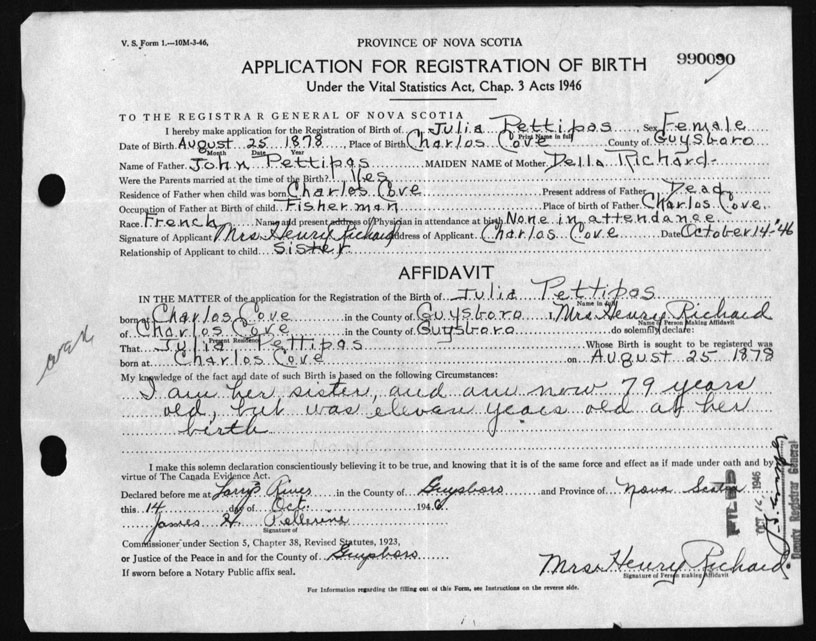 V. S. Form 1.—10M-3-46.
PROVINCE OF NOVA SCOTIA
990090
APPLICATION FOR REGISTRATION OF BIRTH
Under the Vital Statistics Act, Chap. 3 Acts 1946
TO THE REGISTRAR GENERAL OF NOVA SCOTIA
I hereby make application for the Registration of Birth of Julia Pettipas Sex Female
Print Name in full
Date of Birth August 25 1878, Place of Birth Charlos Cove County of Guysboro
Month Date Year
Name of Father John Pettipas MAIDEN NAME of Mother Della Richard
Were the Parents married at the time of the Birth? Yes
Residence of Father when child was born Charlos Cove Present address of Father Dead
Occupation of Father at Birth of child Fisherman Place of birth of Father Charlos Cove
Race French Name and present address of Physician in attendance at birth None in attendance
Signature of Applicant Mrs Henry Richard Address of Applicant Charlos Cove Date October 14-'46
Relationship of Applicant to child Sister
AFFIDAVIT
IN THE MATTER of the application for the Registration of the Birth of Julia Pettipas
Name in full
born at Charlos Cove in the County of Guysboro I, Mrs Henry Richard
Name of Person Making Affidavit
of Charlos Cove in the County of Guysboro do solemnly declare:
Present Residence
That Julia Pettipas Whose Birth is sought to be registered was
born at Charlos Cove on August 25 1878
My knowledge of the fact and date of such Birth is based on the following Circumstances:
I am her sister, and am now 79 years
old, but was eleven years old at her
birth
I make this solemn declaration conscientiously believing it to be true, and knowing that it is of the same force and effect as if made under oath and by
virtue of The Canada Evidence Act.
Declared before me at Larry's River in the County of Guysboro and Province of Nova Scotia
this 14 day of Oct. 1946
James H Pellerine
Signature of
Commissioner under Section 5, Chapter 38, Revised Statutes, 1923,
or Justice of the Peace in and for the County of Guysboro
If sworn before a Notary Public affix seal.
Mrs Henry Richard
Signature of Person making Affidavit
For Information regarding the filling out of this Form, see Instructions on the reverse side.
FILED
OCT 16 1946
Deputy Registrar General